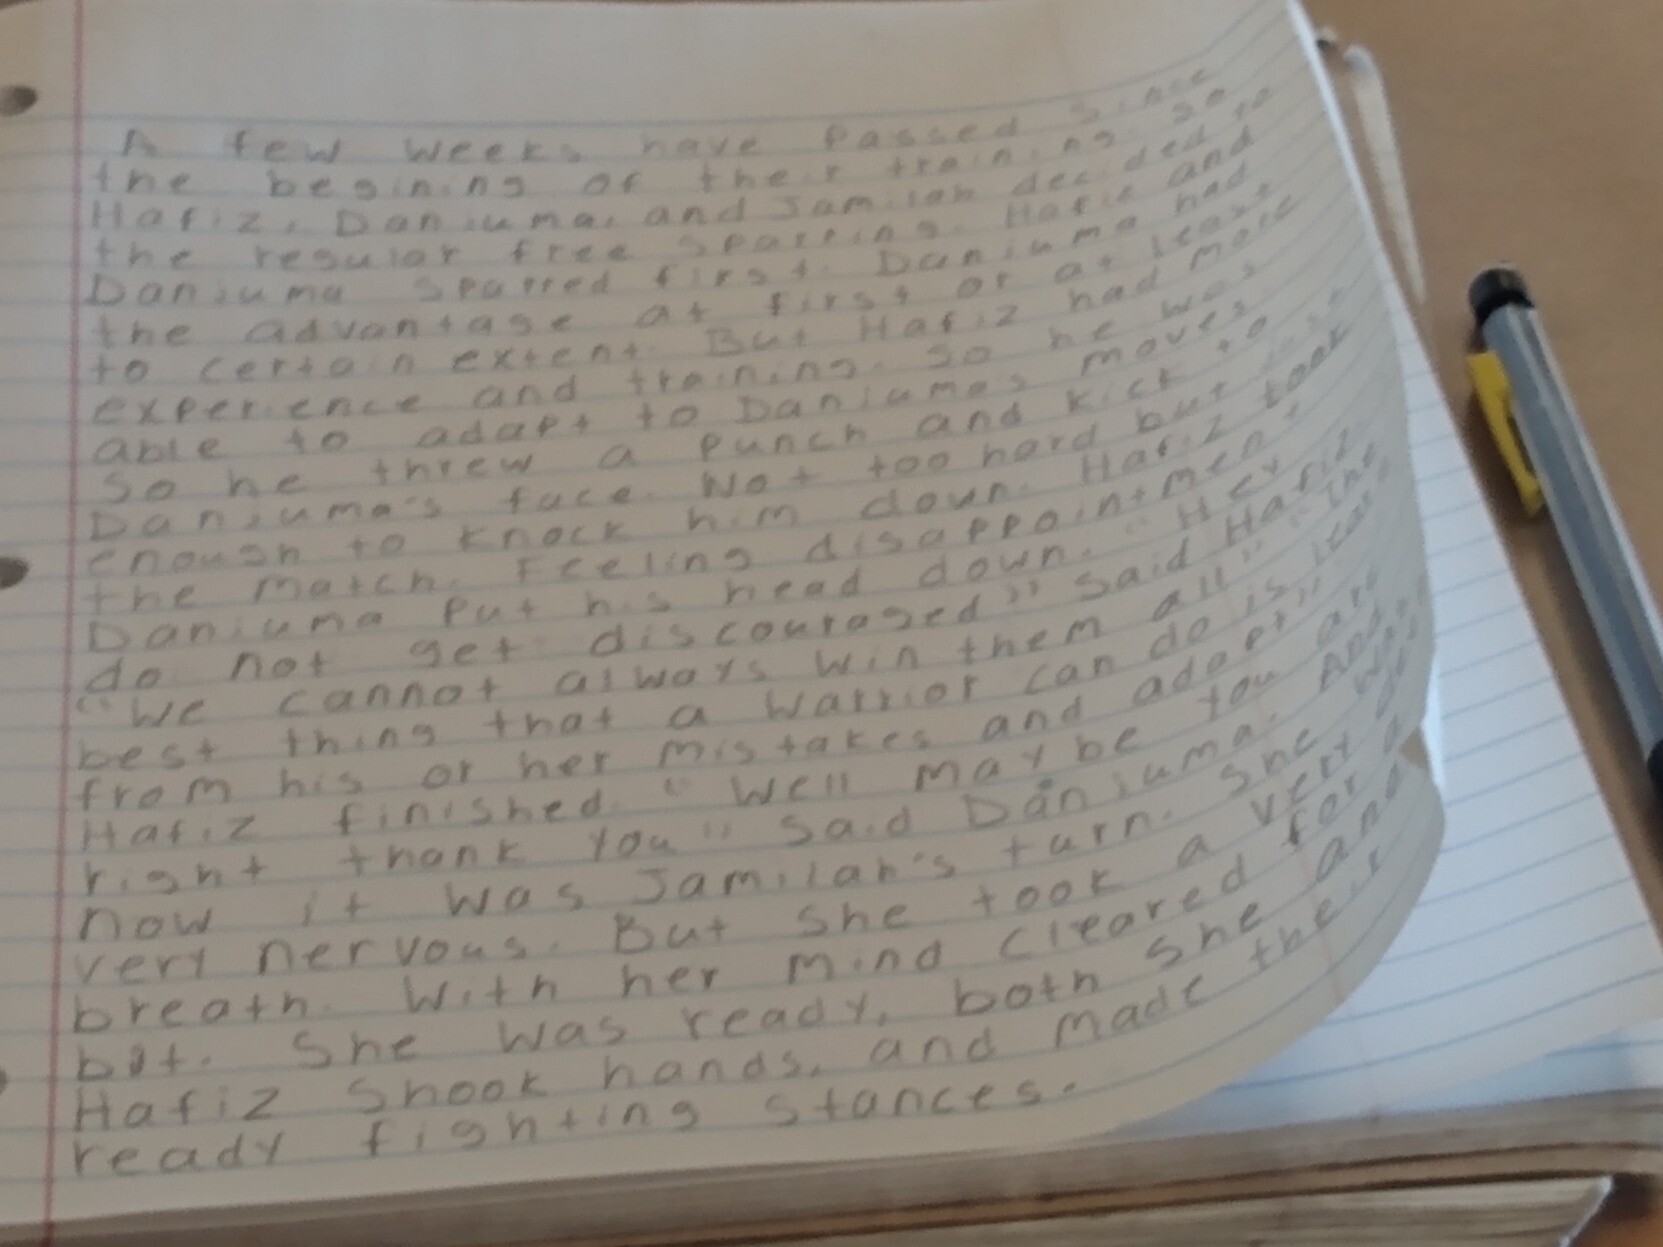 A few weeks have passed since
the begining of their training. So
Hafiz, Danjuma, and Jamilah decided to
the regular free sparring. Hafiz and
Danjuma sparred first. Danjuma had
the advantage at first or at least
to certain extent. But Hafiz had more
experience and training. So he was
able to adapt to Danjumas moves
So he threw a punch and kick to
Danjuma's face. Not too hard but
enough to knock him down. Hafiz took
the match. Feeling disappointment,
Danjuma put his head down. "Hey
do not get discouraged" said Hafiz.
"We cannot always win them all" "The
best thing that a warrior can do is
from his or her mistakes and adapt"
Hafiz finished. "Well maybe you are
right thank you" said Danjuma. And
now it was Jamilah's turn. She was
very nervous. But she took a very
breath. With her mind cleared for a
bit. She was ready, both she and
Hafiz shook hands, and made their
ready fighting stances.